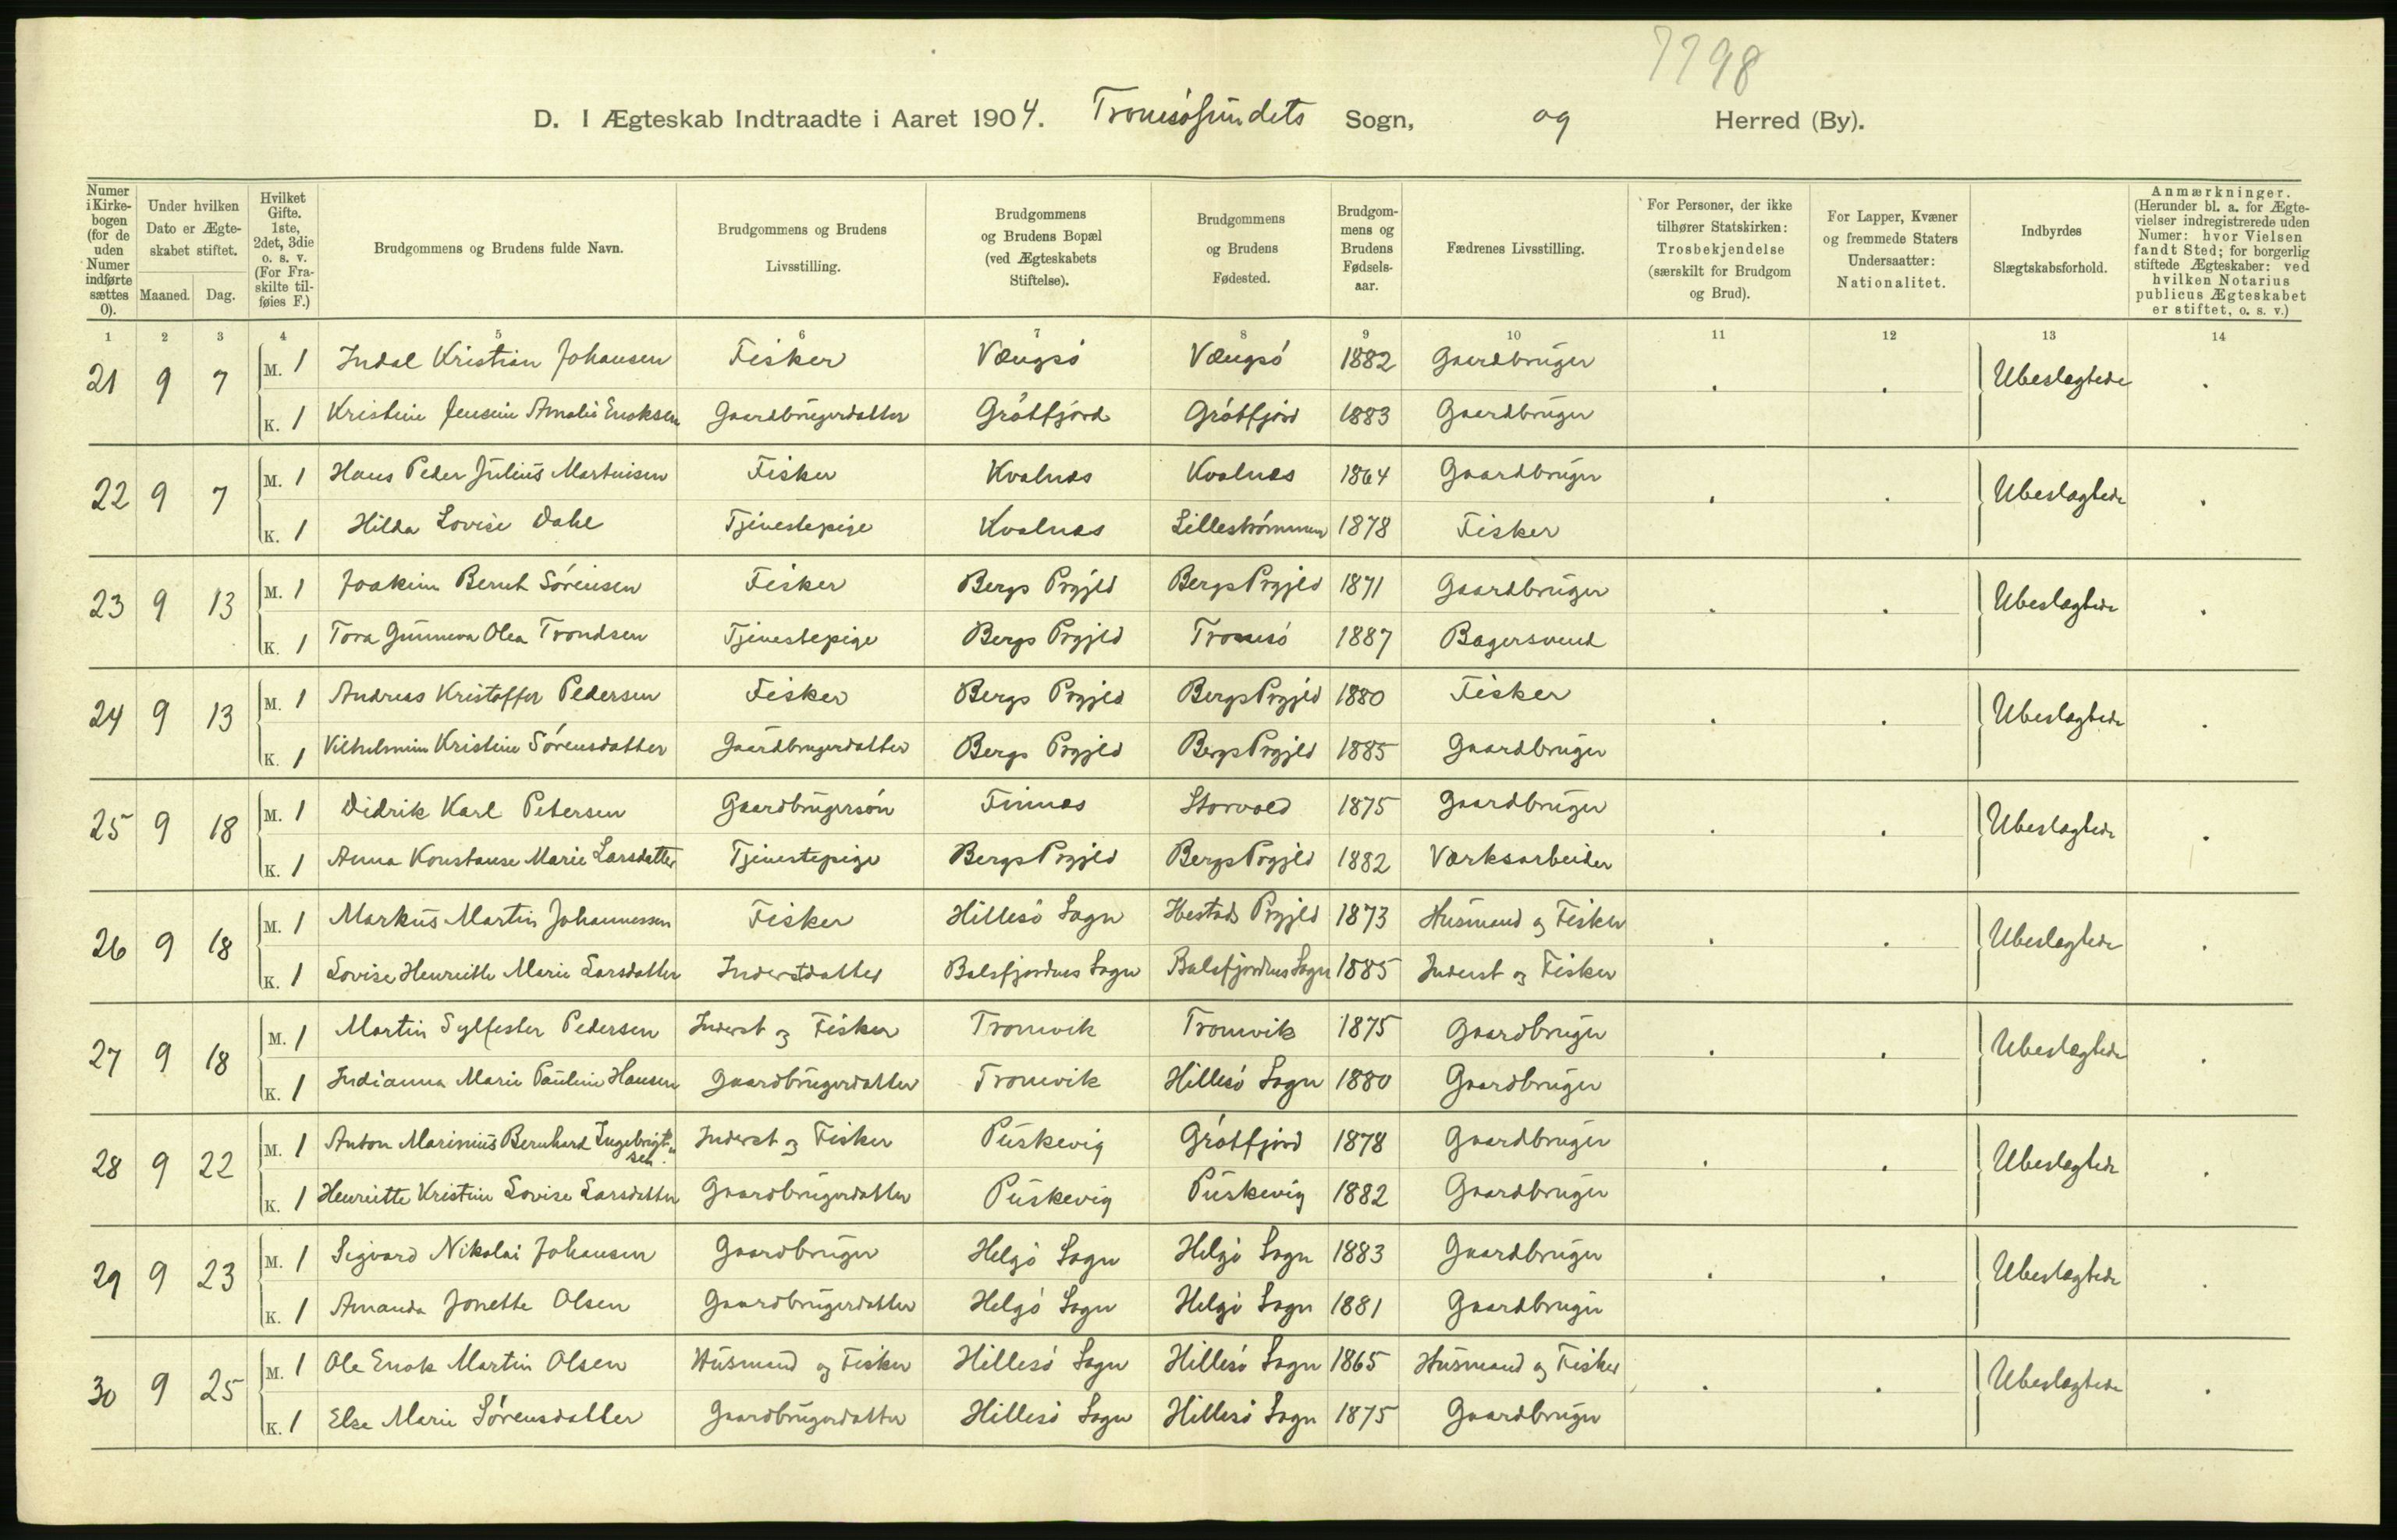 7798
D. I Ægteskab Indtraadte i Aaret 1904. Tromsøsundets Sogn, og Herred (By).
Numer i Kirkebogen (for de uden Numer indførte sættes 0). | Under hvilken Dato er Ægteskabet stiftet. Maaned. Dag. | Hvilket Gifte. 1ste, 2det, 3die o. s. v. (For Fraskilte tilføies F.) | Brudgommens og Brudens fulde Navn. | Brudgommens og Brudens Livsstilling. | Brudgommens og Brudens Bopæl (ved Ægteskabets Stiftelse). | Brudgommens og Brudens Fødested. | Brudgommens og Brudens Fødselsaar. | Fædrenes Livsstilling. | For Personer, der ikke tilhører Statskirken: Trosbekjendelse (særskilt for Brudgom og Brud). | For Lapper, Kvæner og fremmede Staters Undersaatter: Nationalitet. | Indbyrdes Slægtskabsforhold. | Anmærkninger. (Herunder bl. a. for Ægtevielser indregistrerede uden Numer: hvor Vielsen fandt Sted; for borgerlig stiftede Ægteskaber: ved hvilken Notarius publicus Ægteskabet er stiftet, o. s. v.)
1 2 3 4 5 6 7 8 9 10 11 12 13 14
21 9 7 M. 1 Indal Kristian Johansen Fisker Vængsö Vængsö 1882 Gaardbruger . . Ubeslægtede .
K. 1 Kristine Jensine Amalie Enoksen Gaardbrugerdatter Grötfjord Grötfjord 1883 Gaardbruger
22 9 7 M. 1 Hans Peder Julius Martinisen Fisker Kvalnæs Kvalnæs 1864 Gaardbruger . . Ubeslægtede .
K. 1 Hilda Lovise Dahl Tjenestepige Kvalnæs Lilleströmmen 1878 Fisker
23 9 13 M. 1 Joakim Bernt Sörensen Fisker Bergs Prgjld Bergs Prgjld 1871 Gaardbruger . . Ubeslægtede .
K. 1 Tora Gunneva Olea Trondsen Tjenestepige Bergs Prgjld Tromsö 1887 Bagersvend
24 9 13 M. 1 Andreas Kristoffer Pedersen Fisker Bergs Prgjld Bergs Prgjld 1880 Fisker . . Ubeslægtede .
K. 1 Vilhelmine Kristine Sörensdatter Gaardbrugerdatter Bergs Prgjld Bergs Prgjld 1885 Gaardbruger
25 9 18 M. 1 Didrik Karl Petersen Gaardbrugersön Finnæs Storvold 1875 Gaardbruger . . Ubeslægtede .
K. 1 Anna Konstanse Marie Larsdatter Tjenestepige Bergs Prgjld Bergs Prgjld 1882 Værksarbeider
26 9 18 M. 1 Markus Martin Johannessen Fisker Hillesö Sogn Ibestads Prgjld 1873 Husmand og Fisker . . Ubeslægtede .
K. 1 Lovise Henriette Marie Larsdatter Inderstdatter Balsfjordens Sogn Balsfjordens Sogn 1885 Inderst og Fisker
27 9 18 M. 1 Martin Sylfester Pedersen Inderst og Fisker Tromvik Tromvik 1875 Gaardbruger . . Ubeslægtede .
K. 1 Indianna Marie Pauline Hansen Gaardbrugerdatter Tromvik Hillesö Sogn 1880 Gaardbruger
28 9 22 M. 1 Anton Marinius Bernhard Ingebrigtsen. Inderst og Fisker Puskevig Grötfjord 1878 Gaardbruger . . Ubeslægtede .
K. 1 Henriette Kristine Lovise Larsdatter Gaardbrugerdatter Puskevig Puskevig 1882 Gaardbruger
29 9 23 M. 1 Sigvard Nikolai Johansen Gaardbruger Helgö Sogn Helgö Sogn 1883 Gaardbruger . . Ubeslægtede .
K. 1 Amanda Jonette Olsen Gaardbrugerdatter Helgö Sogn Helgö Sogn 1881 Gaardbruger
30 9 25 M. 1 Ole Enok Martin Olsen Husmand og Fisker Hillesö Sogn Hillesö Sogn 1865 Husmand og Fisker . . Ubeslægtede .
K. 1 Else Marie Sörensdatter Gaardbrugerdatter Hillesö Sogn Hillesö Sogn 1875 Gaardbruger